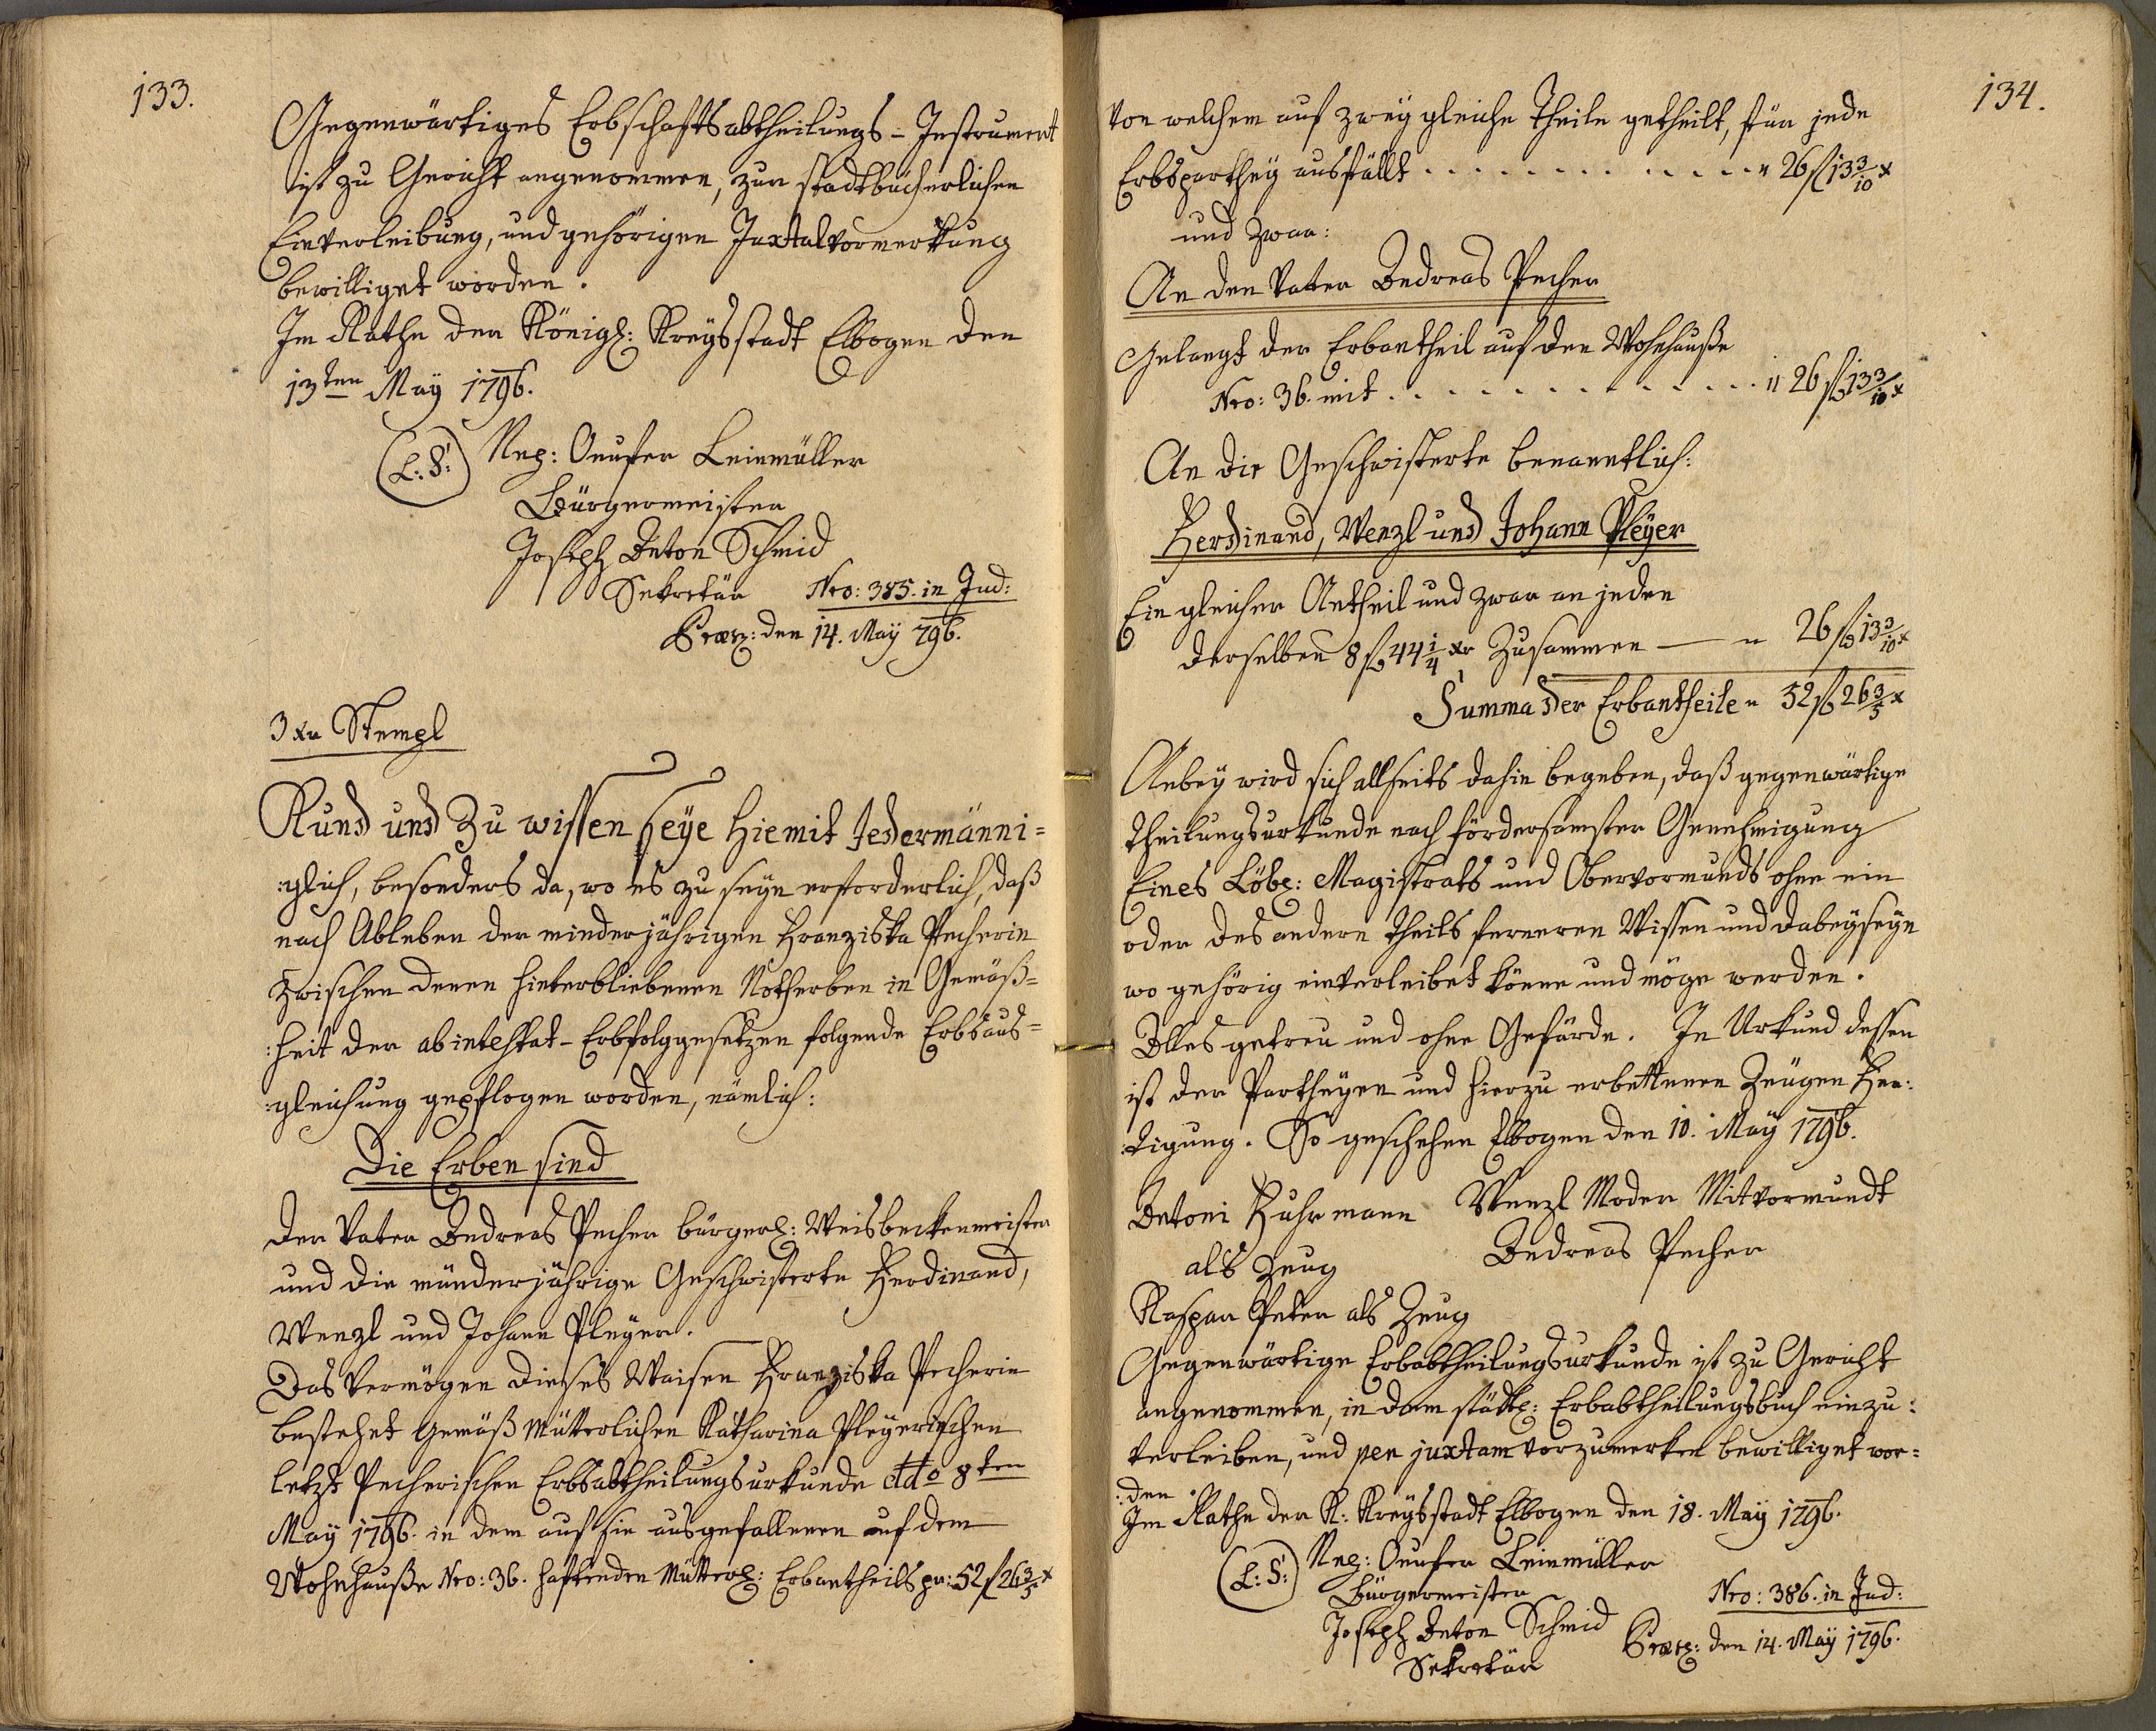 133.
Gegenwärtiges Erbschaftsabtheilungs-Instrument
ist zu Gericht angenommen, zur stadtbücherlichen
Einverleibung, und gehörigen Juxtalvormerkung
bewilliget worden.
Im Rathe der Königl: Kreysstadt Elbogen den
13ten May 1796.
(L:S:) Nep: Onufer Leinmüller
Bürgermeister
Joseph Anton Schmid
Sekretär Nro: 385. in Jud:
Præs: den 14. May 796.
3 xr Stempl
Kund und Zu wissen seye hiemit Jedermänni=
:glich, besonders da, wo es zu seyn erforderlich, daß
nach Ableben der minderjährigen Franziska Pecherin
zwischen denen hinterbliebenen Notherben in Gemäß=
:heit der ab intestat-Erbfolggesetzen folgende Erbsaus=
:gleichung gepflogen worden, nämlich:
Die Erben sind
Der Vater Andreas Pecher bürgerl: Weisbeckenmeister
und die münderjährige Geschwisterte Ferdinand,
Wenzl und Johann Pleyer.
Das Vermögen dieses Waisen Franziska Pecherin
bestehet gemäß Mütterlichen Katharina Pleyerischen
letzt Pecherischen Erbsabtheilungsurkunde ddto 8ten
May 1796. in dem auf sie ausgefallenen auf dem
Wohnhauße Nro: 36. haftenden Mütterl: Erbantheils pr: 52 f 26 3/5 x
134.
von welchem auf zwey gleiche Theile getheilt, für jede
Erbsparthey ausfällt . . . . . . . . . . . . " 26 f 13 3/10 x
und zwar:
An den Vater Andreas Pecher
Gelangt der Erbantheil auf den Wohnhauße
Nro: 36. mit . . . . . . . . . . . . " 26 f 13 3/10 x
An die Geschwisterte benanntlich:
Ferdinand, Wenzl und Johann Pleyer
Ein gleicher Antheil und zwar an jeden
derselben 8 f 44 1/4 xr Zusammen — " 26 f 13 3/10 x
Summa der Erbantheile " 52 f 26 3/5 x
Anbey wird sich allseits dahin begeben, daß gegenwärtige
Theilungsurkunde nach fördersamster Genehmigung
Eines Löbl: Magistrats und Obervormunds ohne ein
oder des andern Theils ferneren Wissen und dabeyseyn
wo gehörig einverleibet könne und möge werden.
Alles getreu und ohne Gefärde. In Urkund dessen
ist der Partheyen und hierzu erbettenen Zeugen Fer:
:tigung. So geschehen Elbogen den 10. May 1796.
Antoni Fuhrmann Wenzl Moder Mitvormundt
als Zeug Andreas Pecher
Kaspar Peter als Zeug
Gegenwärtige Erbabtheilungsurkunde ist zu Gericht
angenommen, in dem städtl: Erbabtheilungsbuch einzu:
verleiben, und per juxtam vorzumerken bewilliget wor=
:den.
Im Rathe der K: Kreysstadt Elbogen den 18. May 1796.
(L:S:) Nep: Onufer Leinmüller
Bürgermeister Nro: 386. in Jud:
Joseph Anton Schmid Præs: den 14. May 1796.
Sekretär